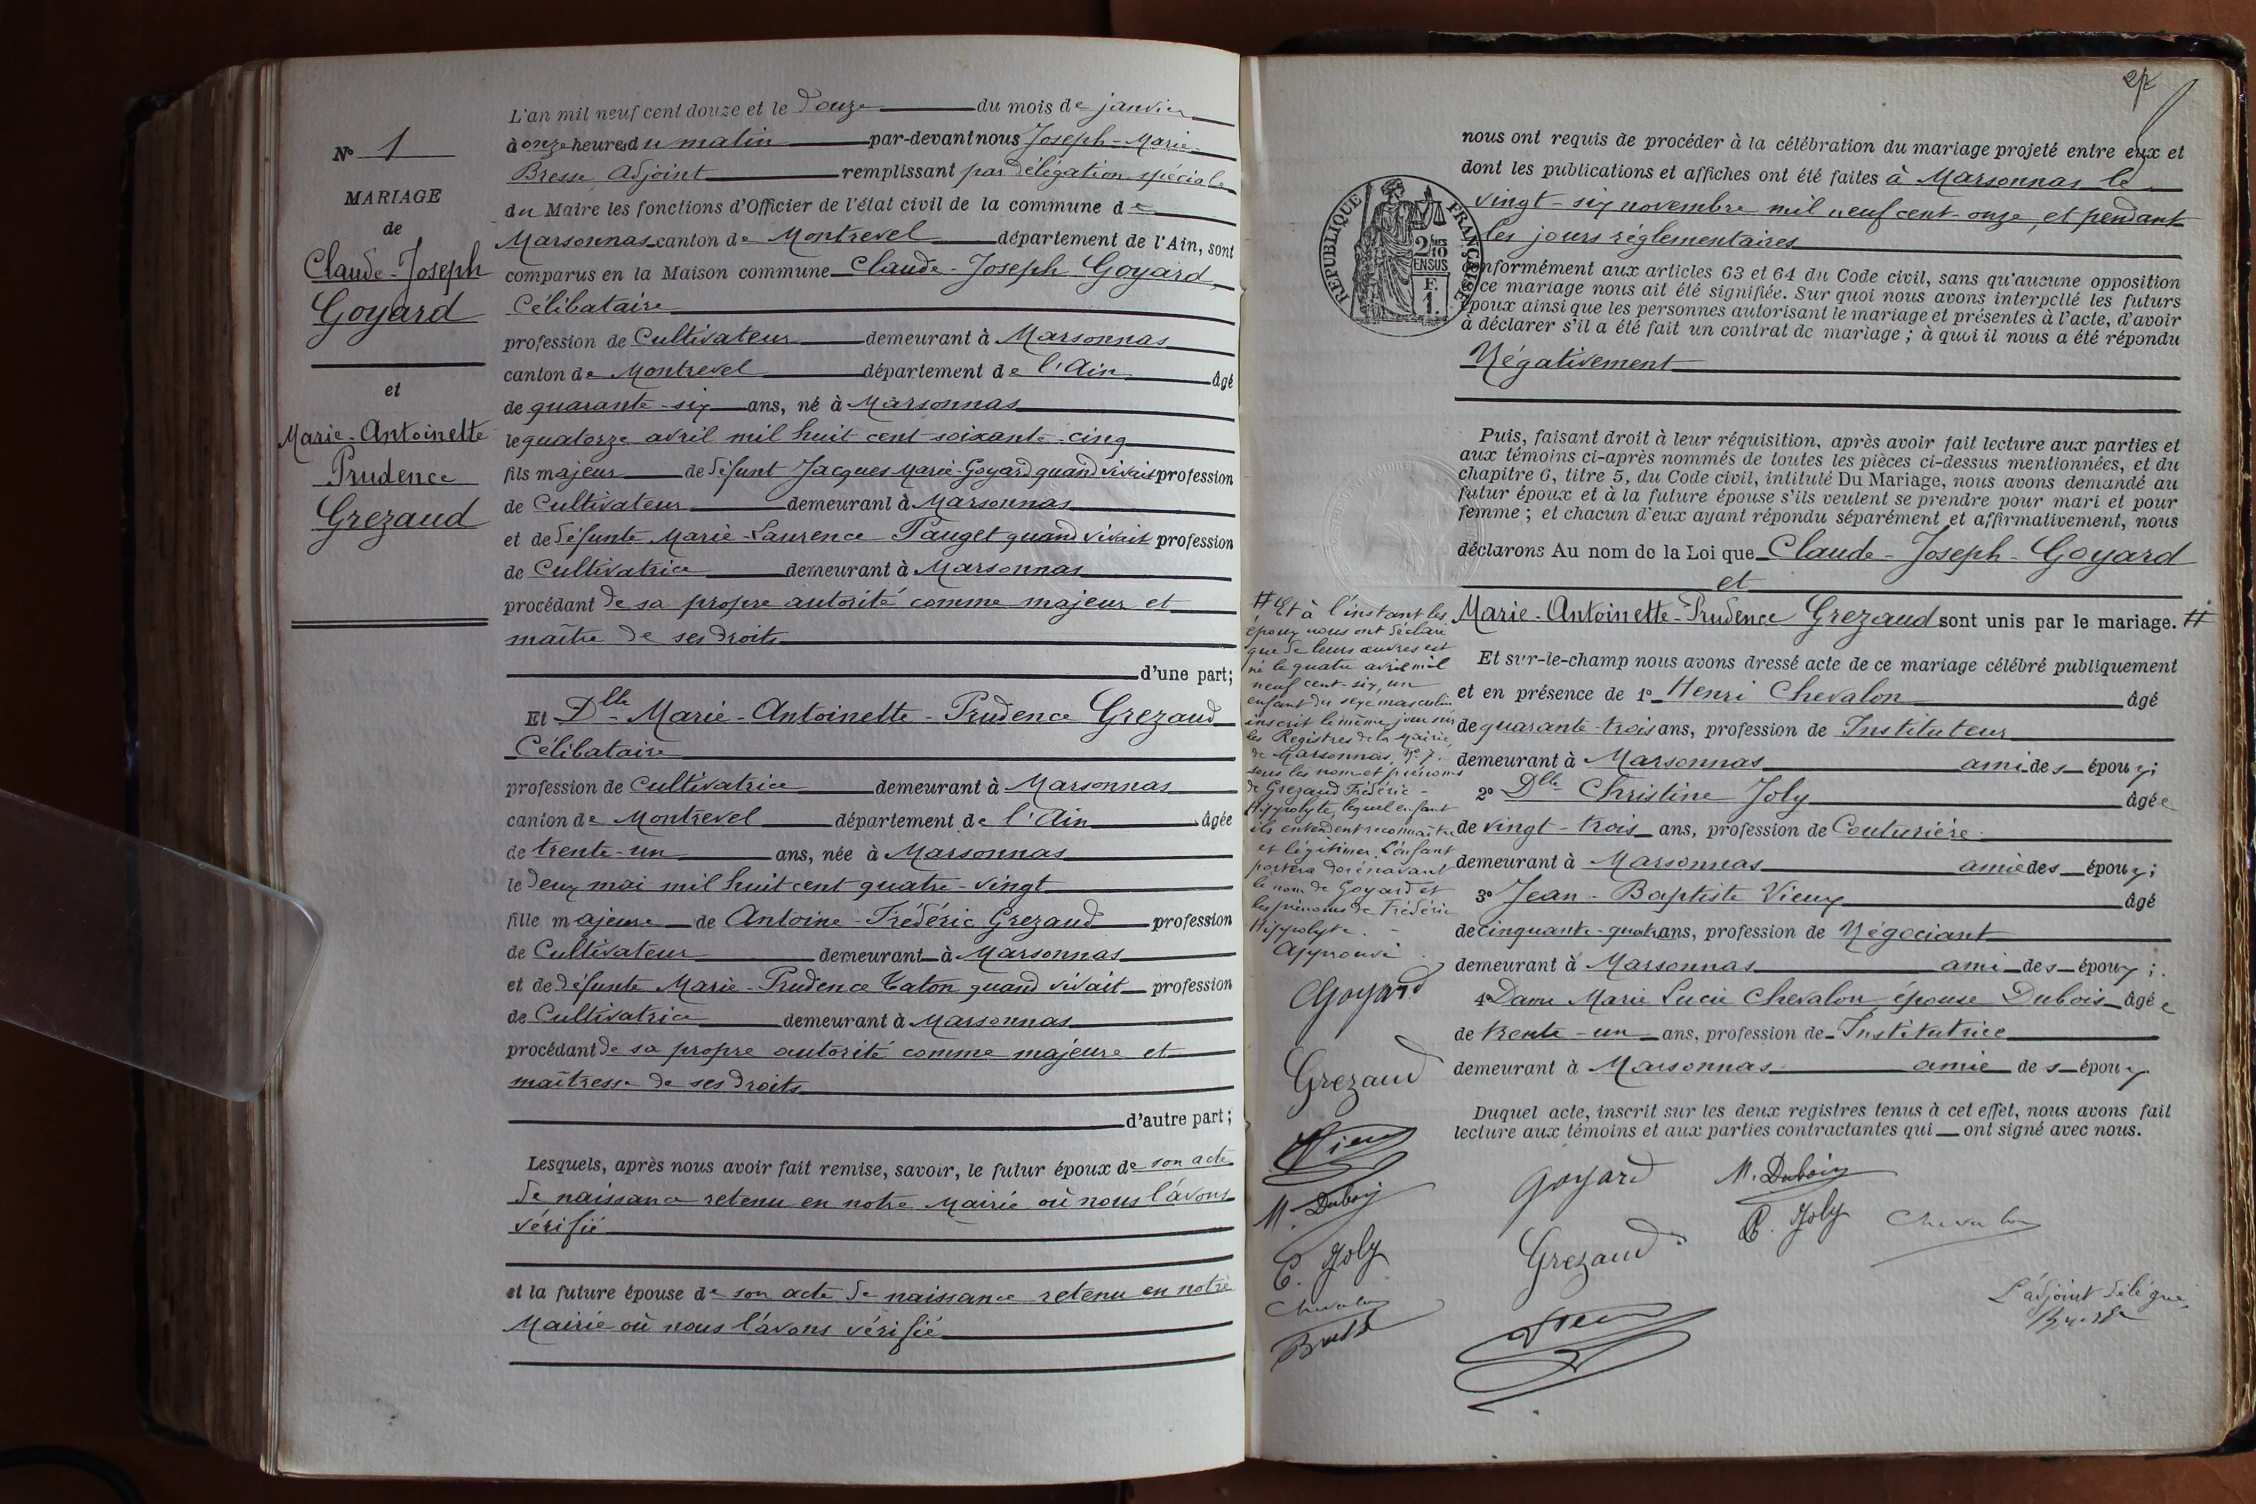 N° 1
MARIAGE
de
Claude-Joseph
Goyard
et
Marie-Antoinette
Prudence
Grezaud
L'an mil neuf cent douze et le douze du mois de janvier
à onze heures du matin par-devant nous Joseph-Marie
Bresse Adjoint remplissant par délégation spéciale
du Maire les fonctions d'Officier de l'état civil de la commune de
Marsonnas canton de Montrevel département de l'Ain, sont
comparus en la Maison commune Claude-Joseph Goyard,
Célibataire
profession de Cultivateur demeurant à Marsonnas
canton de Montrevel département de l'Ain âgé
de quarante-six ans, né à Marsonnas
le quatorze avril mil huit cent soixante-cinq
fils majeur de défunt Jacques Marie Goyard quand vivait profession
de Cultivateur demeurant à Marsonnas
et de défunte Marie-Laurence Pauget quand vivait profession
de Cultivatrice demeurant à Marsonnas
procédant de sa propre autorité comme majeur et
maître de ses droits
d'une part;
Et Dlle Marie-Antoinette-Prudence Grezaud
Célibataire
profession de Cultivatrice demeurant à Marsonnas
canton de Montrevel département de l'Ain âgée
de trente-un ans, née à Marsonnas
le deux mai mil huit cent quatre-vingt
fille majeure de Antoine-Frédéric Grezaud profession
de Cultivateur demeurant à Marsonnas
et de défunte Marie-Prudence Caton quand vivait profession
de Cultivatrice demeurant à Marsonnas
procédant de sa propre autorité comme majeure et
maîtresse de ses droits
d'autre part;
Lesquels, après nous avoir fait remise, savoir, le futur époux de son acte
de naissance retenu en notre Mairie où nous l'avons
vérifié
et la future épouse de son acte de naissance retenu en notre
Mairie où nous l'avons vérifié
nous ont requis de procéder à la célébration du mariage projeté entre eux et
dont les publications et affiches ont été faites à Marsonnas le
vingt-six novembre mil neuf cent-onze, et pendant
les jours réglementaires
conformément aux articles 63 et 64 du Code civil, sans qu'aucune opposition
à ce mariage nous ait été signifiée. Sur quoi nous avons interpellé les futurs
époux ainsi que les personnes autorisant le mariage et présentes à l'acte, d'avoir
à déclarer s'il a été fait un contrat de mariage; à quoi il nous a été répondu
Négativement
RÉPUBLIQUE FRANÇAISE
2/10
EN SUS
F.
1.
Puis, faisant droit à leur réquisition, après avoir fait lecture aux parties et
aux témoins ci-après nommés de toutes les pièces ci-dessus mentionnées, et du
chapitre 6, titre 5, du Code civil, intitulé Du Mariage, nous avons demandé au
futur époux et à la future épouse s'ils veulent se prendre pour mari et pour
femme; et chacun d'eux ayant répondu séparément et affirmativement, nous
déclarons Au nom de la Loi que Claude-Joseph-Goyard
et
Marie-Antoinette-Prudence Grezaud sont unis par le mariage. #
Et sur-le-champ nous avons dressé acte de ce mariage célébré publiquement
et en présence de 1° Henri Chevalon âgé
de quarante-trois ans, profession de Instituteur
demeurant à Marsonnas ami des époux;
2° Dlle Christine Joly âgée
de vingt-trois ans, profession de Couturière
demeurant à Marsonnas amie des époux;
3° Jean-Baptiste Vieux âgé
de cinquante-quatre ans, profession de Négociant
demeurant à Marsonnas ami des époux;
4° Dame Marie Lucie Chevalon épouse Dubois âgée
de trente-un ans, profession de Institutrice
demeurant à Marsonnas amie des époux.
Duquel acte, inscrit sur les deux registres tenus à cet effet, nous avons fait
lecture aux témoins et aux parties contractantes qui ont signé avec nous.
Goyard M. Dubois
C. Joly Chevalon
Grezaud
L'adjoint délégué,
Bresse
Vieux
# Et à l'instant les
époux nous ont déclaré
que de leurs œuvres est
né le quatre avril mil
neuf cent-six, un
enfant du sexe masculin
inscrit le même jour sur
les Registres de la Mairie,
de Marsonnas, N° 7.
sous les nom et prénoms
de Grezaud Frédéric-
Hippolyte, lequel enfant
ils entendent reconnaître
et légitimer. L'enfant
portera dorénavant
le nom de Goyard et
les prénoms de Frédéric
Hippolyte.
Approuvé
Goyard
Grezaud
Vieux
M. Dubois
C. Joly
Chevalon
Bresse